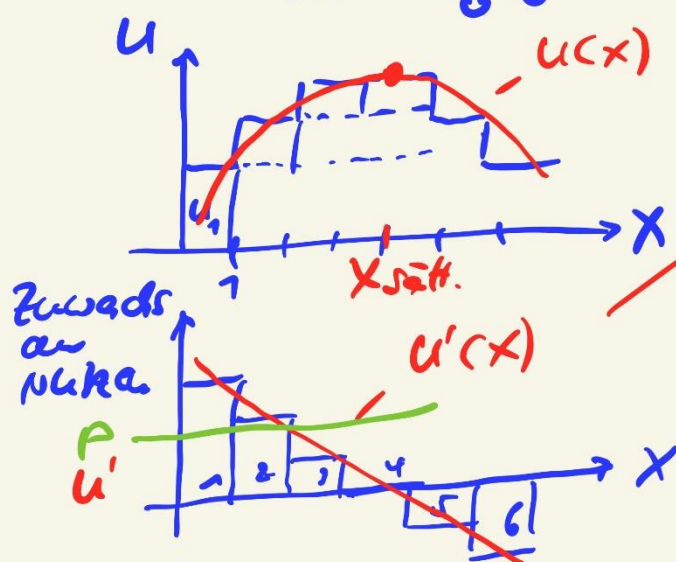 U
U(x)
U1
1
X sätt.
X
Zuwachs
an
Nutzen
U'(x)
P
U'
1 2 3 4 5 6
X